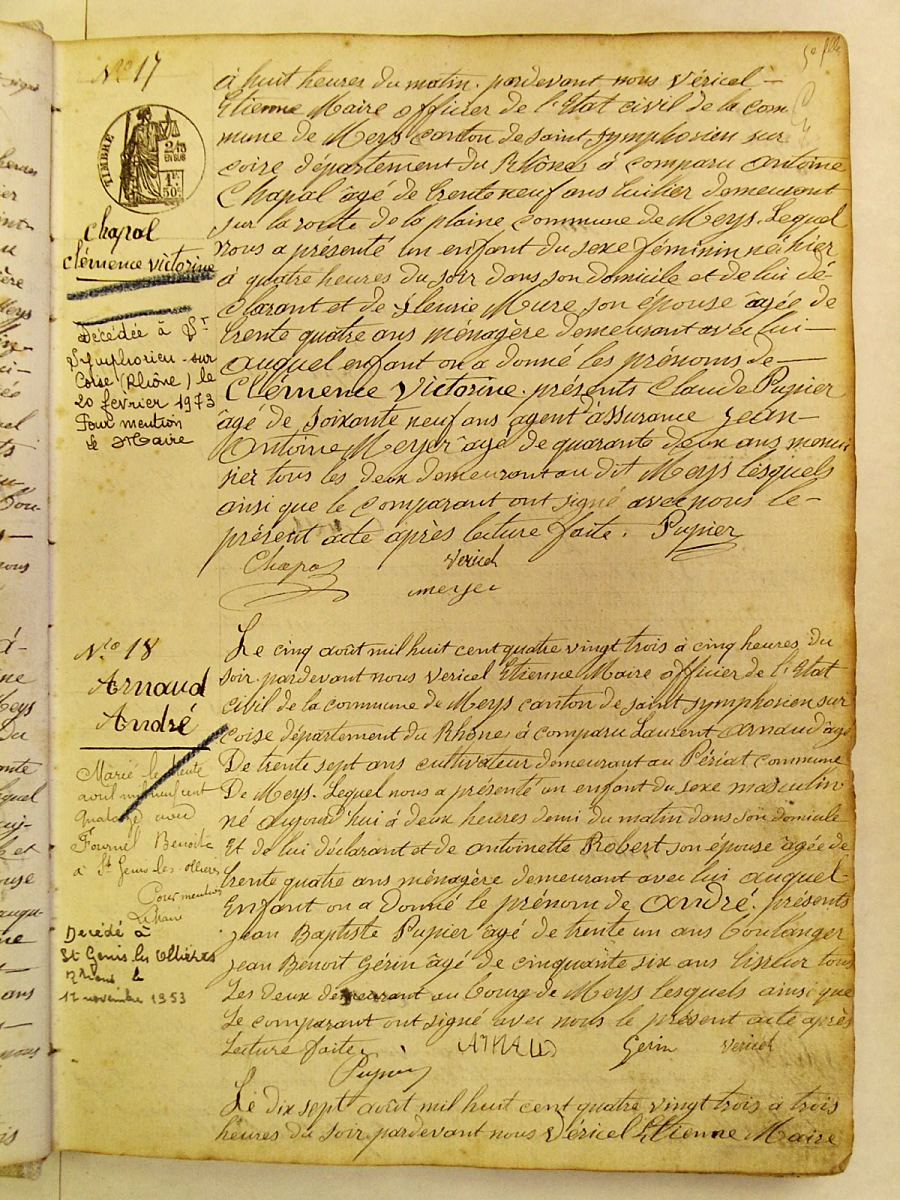 5e flle
No 17
TIMBRE
2/10
EN SUS
1F.
50c
Chapal
Clémence Victorine
Décédée à St
Symphorien-sur
Coise (Rhône) le
20 février 1973
Pour mention
le Maire
à huit heures du matin. pardevant nous Véricel
Etienne Maire officier de l'Etat civil de la com
mune de Meys canton de saint symphorien sur
coise département du Rhône, à comparu Antoine
Chapal âgé de trente neuf ans tuilier demeurant
sur la route de la plaine, commune de Meys. Lequel
nous a présenté un enfant du sexe féminin né hier
à quatre heures du soir dans son domicile et de lui dé-
clarant et de fleurie Mure son épouse âgée de
trente quatre ans ménagère demeurant avec lui
auquel enfant on a donné les prénoms de
Clémence Victorine. présents Claude Pupier
âgé de soixante neuf ans agent d'assurance jean
Antoine Meyer âgé de quarante deux ans menui
sier tous les deux demeurant au dit Meys lesquels
ainsi que le comparant ont signé avec nous le
présent acte après lecture faite. Pupier
Chapal Vericel
meyer
No 18
Arnaud
André
Marié le trente
avril mil neuf cent
quatorze avec
Fournel Benoîte
à St Genis-les-Ollières
Pour mention
Décédé à
St Genis les Ollières
Rhône le
17 novembre 1953
Le cinq août mil huit cent quatre vingt trois à cinq heures du
soir pardevant nous Vericel Etienne Maire officier de l'Etat
civil de la commune de Meys canton de saint symphorien sur
coise département du Rhône à comparu Laurent Arnaud âgé
De trente sept ans cultivateur demeurant au Périat, commune
De Meys. Lequel nous a présenté un enfant du sexe masculin
né aujourd'hui à deux heures demi du matin dans son domicile
Et de lui déclarant et de antoinette Robert son épouse âgée de
trente quatre ans ménagère demeurant avec lui auquel
Enfant on a donné le prénom de André. présents
jean Baptiste Pupier âgé de trente un ans boulanger
jean Benoit Gérin âgé de cinquante six ans tisseur tous
Les deux demeurant au bourg de Meys lesquels ainsi que
Le comparant ont signé avec nous le présent acte après
Lecture faite. ARNAUD Gerin Vericel
Pupier
Le dix sept août mil huit cent quatre vingt trois à trois
heures du soir pardevant nous Véricel Etienne Maire